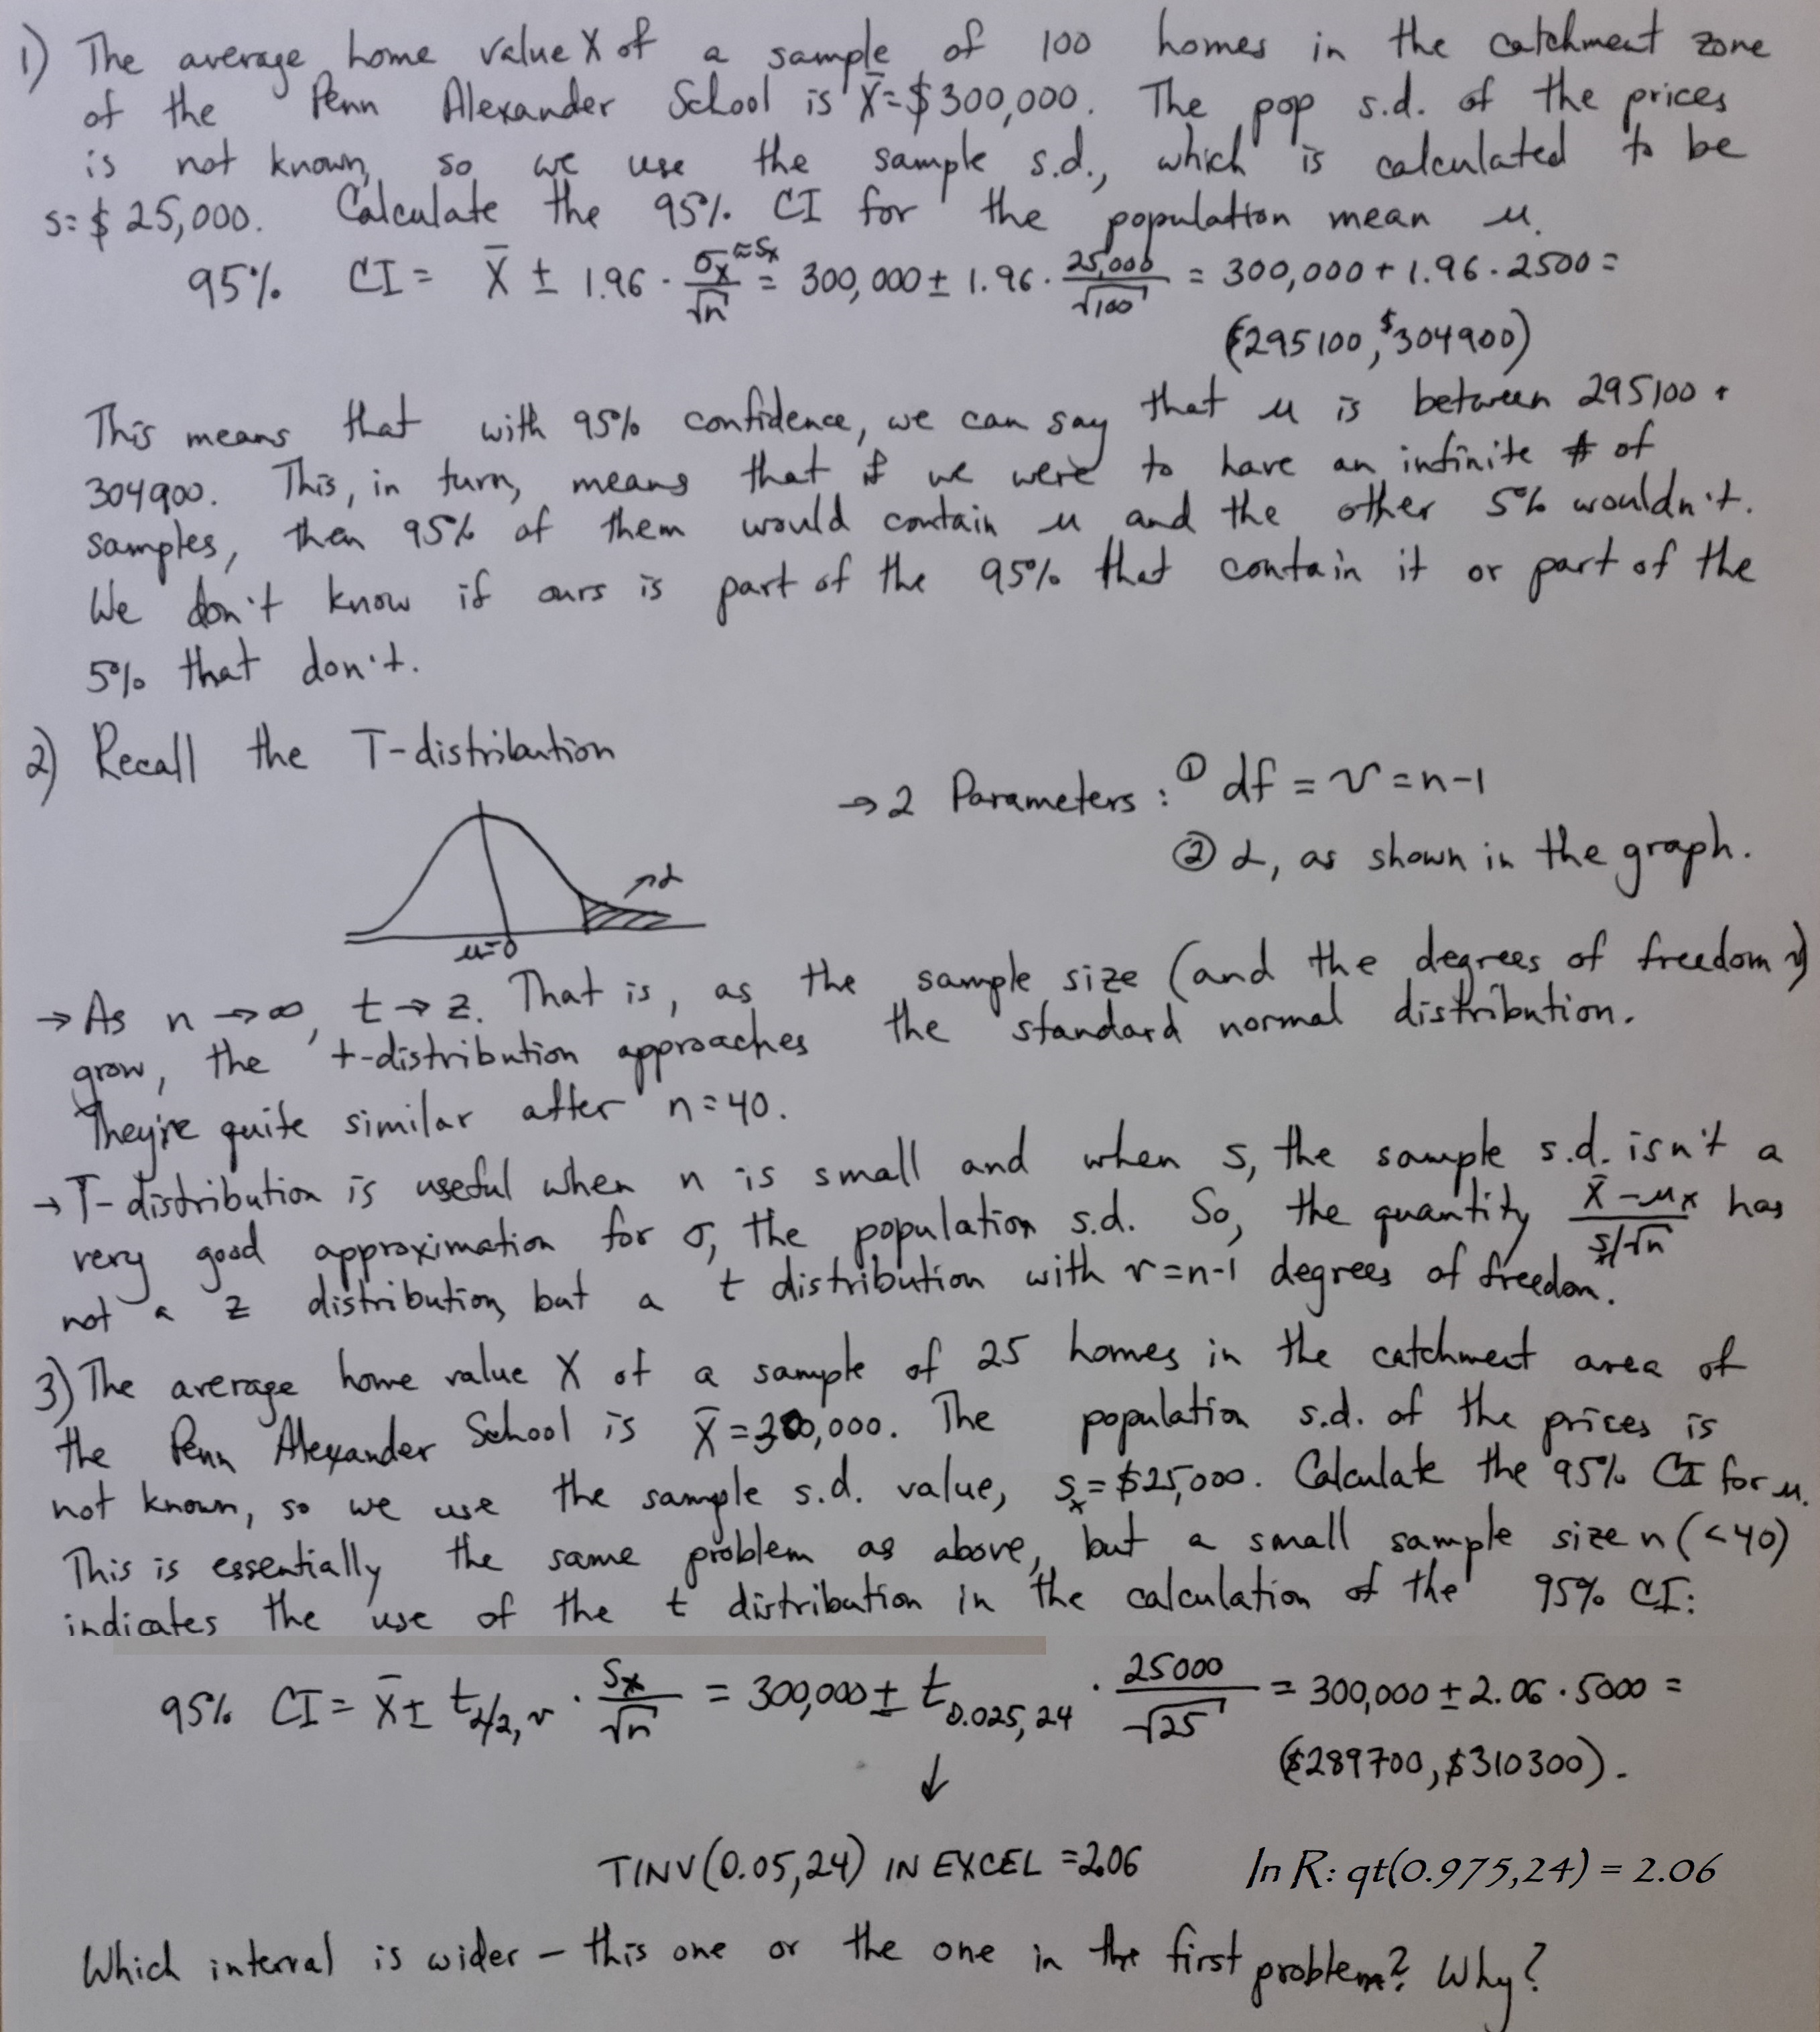 1) The average home value X of a sample of 100 homes in the catchment zone
of the Penn Alexander School is X̄=$300,000. The pop s.d. of the prices
is not known, so we use the sample s.d., which is calculated to be
s=$25,000. Calculate the 95% CI for the population mean μ.
95% CI = X̄ ± 1.96 · σx≈sx/√n = 300,000 ± 1.96 · 25,000/√100 = 300,000 + 1.96 · 2500 =
($295100, $304900)
This means that with 95% confidence, we can say that μ is between 295100 +
304900. This, in turn, means that if we were to have an infinite # of
samples, then 95% of them would contain μ and the other 5% wouldn't.
We don't know if ours is part of the 95% that contain it or part of the
5% that don't.
2) Recall the T-distribution
→ 2 Parameters: ① df = ν = n-1
② α, as shown in the graph.
α
μ=0
→ As n → ∞, t → z. That is, as the sample size (and the degrees of freedom ν)
grow, the t-distribution approaches the standard normal distribution.
They're quite similar after n=40.
→ T-distribution is useful when n is small and when s, the sample s.d. isn't a
very good approximation for σ, the population s.d. So, the quantity X̄-μx/s/√n has
not a z distribution, but a t distribution with ν=n-1 degrees of freedom.
3) The average home value X of a sample of 25 homes in the catchment area of
the Penn Alexander School is X̄=300,000. The population s.d. of the prices is
not known, so we use the sample s.d. value, sx=$25,000. Calculate the 95% CI for μ.
This is essentially the same problem as above, but a small sample size n (<40)
indicates the use of the t distribution in the calculation of the 95% CI:
95% CI = X̄ ± tα/2,ν · sx/√n = 300,000 ± t0.025,24 · 25000/√25 = 300,000 ± 2.06 · 5000 =
($289700, $310300).
↓
TINV(0.05,24) IN EXCEL =2.06 In R: qt(0.975,24) = 2.06
Which interval is wider – this one or the one in the first problem? Why?